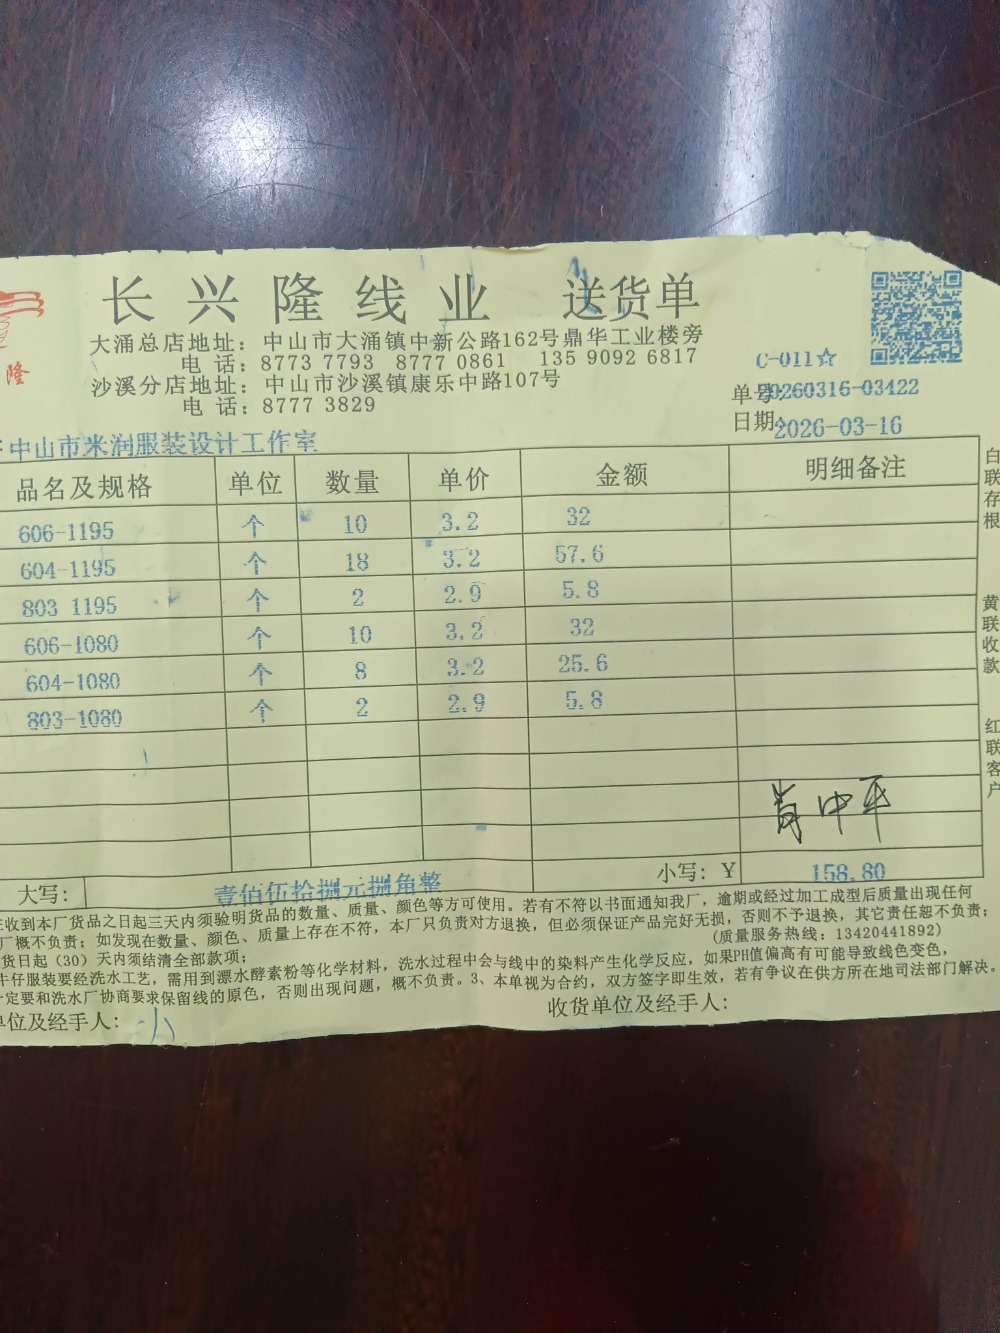 长兴隆线业 送货单
隆
大涌总店地址：中山市大涌镇中新公路162号鼎华工业楼旁
电 话：8773 7793 8777 0861 135 9092 6817
沙溪分店地址：中山市沙溪镇康乐中路107号
电 话：8777 3829
C-011☆
单号:20260316-03422
日期:2026-03-16
：中山市米润服装设计工作室
品名及规格 单位 数量 单价 金额 明细备注
606-1195 个 10 3.2 32
604-1195 个 18 3.2 57.6
803 1195 个 2 2.9 5.8
606-1080 个 10 3.2 32
604-1080 个 8 3.2 25.6
803-1080 个 2 2.9 5.8
肖中平
大写： 壹佰伍拾捌元捌角整 小写：￥ 158.80
在收到本厂货品之日起三天内须验明货品的数量、质量、颜色等方可使用。若有不符以书面通知我厂，逾期或经过加工成型后质量出现任何
厂概不负责；如发现在数量、颜色、质量上存在不符，本厂只负责对方退换，但必须保证产品完好无损，否则不予退换，其它责任恕不负责；
货日起（30）天内须结清全部款项； (质量服务热线：13420441892)
牛仔服装要经洗水工艺，需用到漂水酵素粉等化学材料，洗水过程中会与线中的染料产生化学反应，如果PH值偏高有可能导致线色变色，
定要和洗水厂协商要求保留线的原色，否则出现问题，概不负责。3、本单视为合约，双方签字即生效，若有争议在供方所在地司法部门解决。
单位及经手人： 收货单位及经手人：
白联存根
黄联收款
红联客户